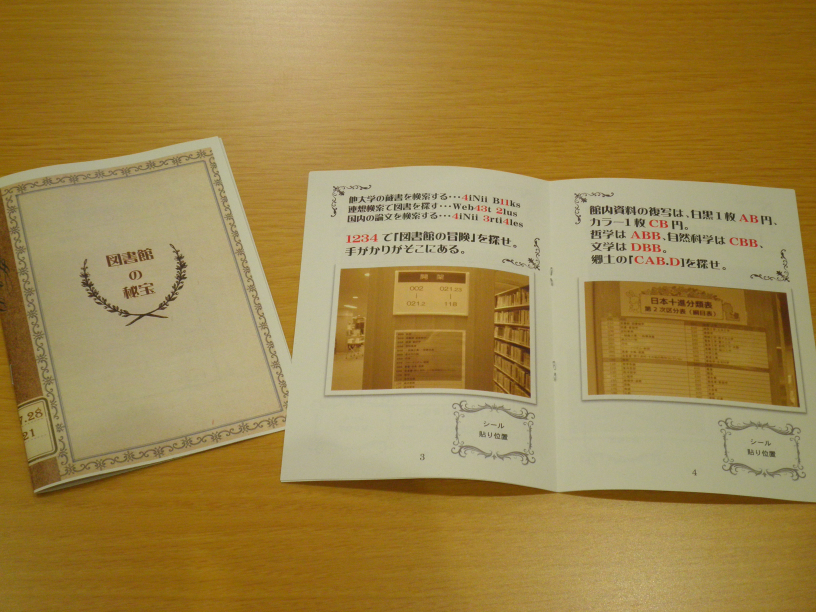 図書館
の
秘宝
7.28
21
他大学の蔵書を検索する・・・4iNii B11ks
連想検索で図書を探す・・・Web43t 2lus
国内の論文を検索する・・・4iNii 3rti4les
1234で「図書館の冒険」を探せ。
手がかりがそこにある。
開架
002
021.2
シール
貼り位置
3
館内資料の複写は、白黒1枚 AB円、
カラー1枚 CB円。
哲学は ABB、自然科学は CBB、
文学は DBB。
郷土の「CAB.D」を探せ。
日本十進分類表
第2次区分表(綱目表)
シール
貼り位置
4